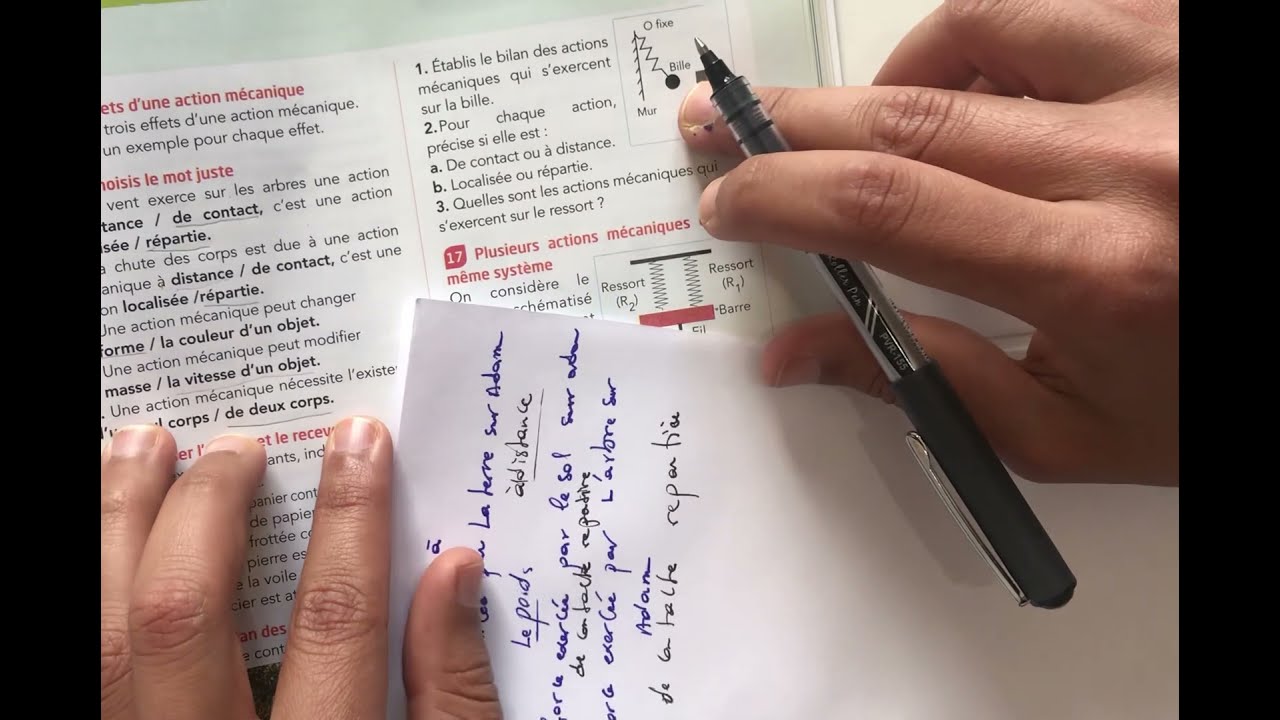 ets d'une action mécanique
trois effets d'une action mécanique.
un exemple pour chaque effet.
oisis le mot juste
vent exerce sur les arbres une action
tance / de contact, c'est une action
sée / répartie.
a chute des corps est due à une action
anique à distance / de contact, c'est une
on localisée /répartie.
Une action mécanique peut changer
forme / la couleur d'un objet.
Une action mécanique peut modifier
masse / la vitesse d'un objet.
. Une action mécanique nécessite l'existe
corps / de deux corps.
et le recev
ants, ind
panier cont
de papier
frottée co
pierre es
e la voile
cier est at
an des
e cont
1. Établis le bilan des actions
mécaniques qui s'exercent
sur la bille.
2.Pour chaque action,
précise si elle est :
a. De contact ou à distance.
b. Localisée ou répartie.
3. Quelles sont les actions mécaniques qui
s'exercent sur le ressort ?
O fixe
Bille
Mur
17 Plusieurs actions mécaniques
même système
On considère le
schématisé
Ressort
(R2)
Ressort
(R1)
Barre
Fil
à
La terre sur Adam
Le poids à distance
force exercée par le sol sur adam
de contacte repartire
force exercée par L'arbre sur
Adam
de contacte repartie
Roller Pen
PVR-155